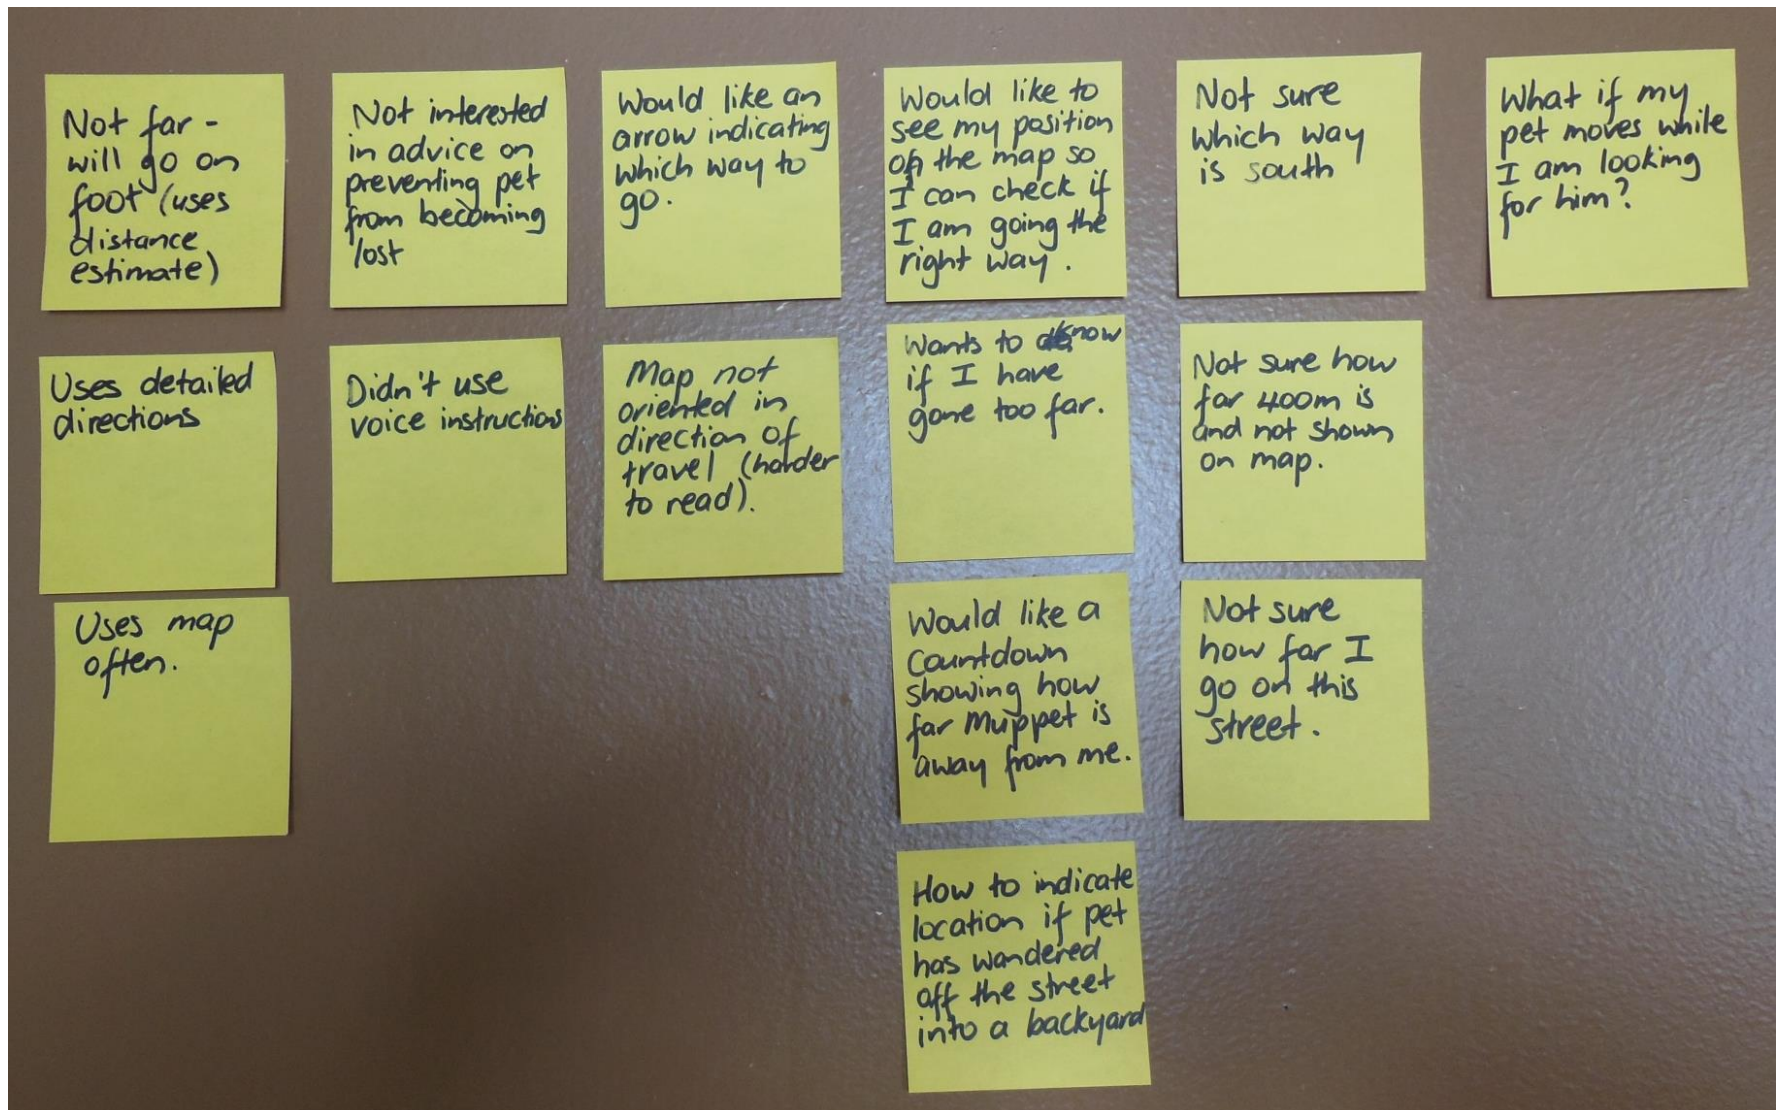 Not far -
will go on
foot (uses
distance
estimate)
Uses detailed
directions
Uses map
often.
Not interested
in advice on
preventing pet
from becoming
lost
Didn't use
voice instructions
Would like an
arrow indicating
which way to
go.
Map not
oriented in
direction of
travel (harder
to read).
Would like to
see my position
on the map so
I can check if
I am going the
right way.
Wants to know
if I have
gone too far.
Would like a
countdown
showing how
far Muppet is
away from me.
How to indicate
location if pet
has wandered
off the street
into a backyard
Not sure
which way
is south
Not sure how
far 400m is
and not shown
on map.
Not sure
how far I
go on this
street.
What if my
pet moves while
I am looking
for him?